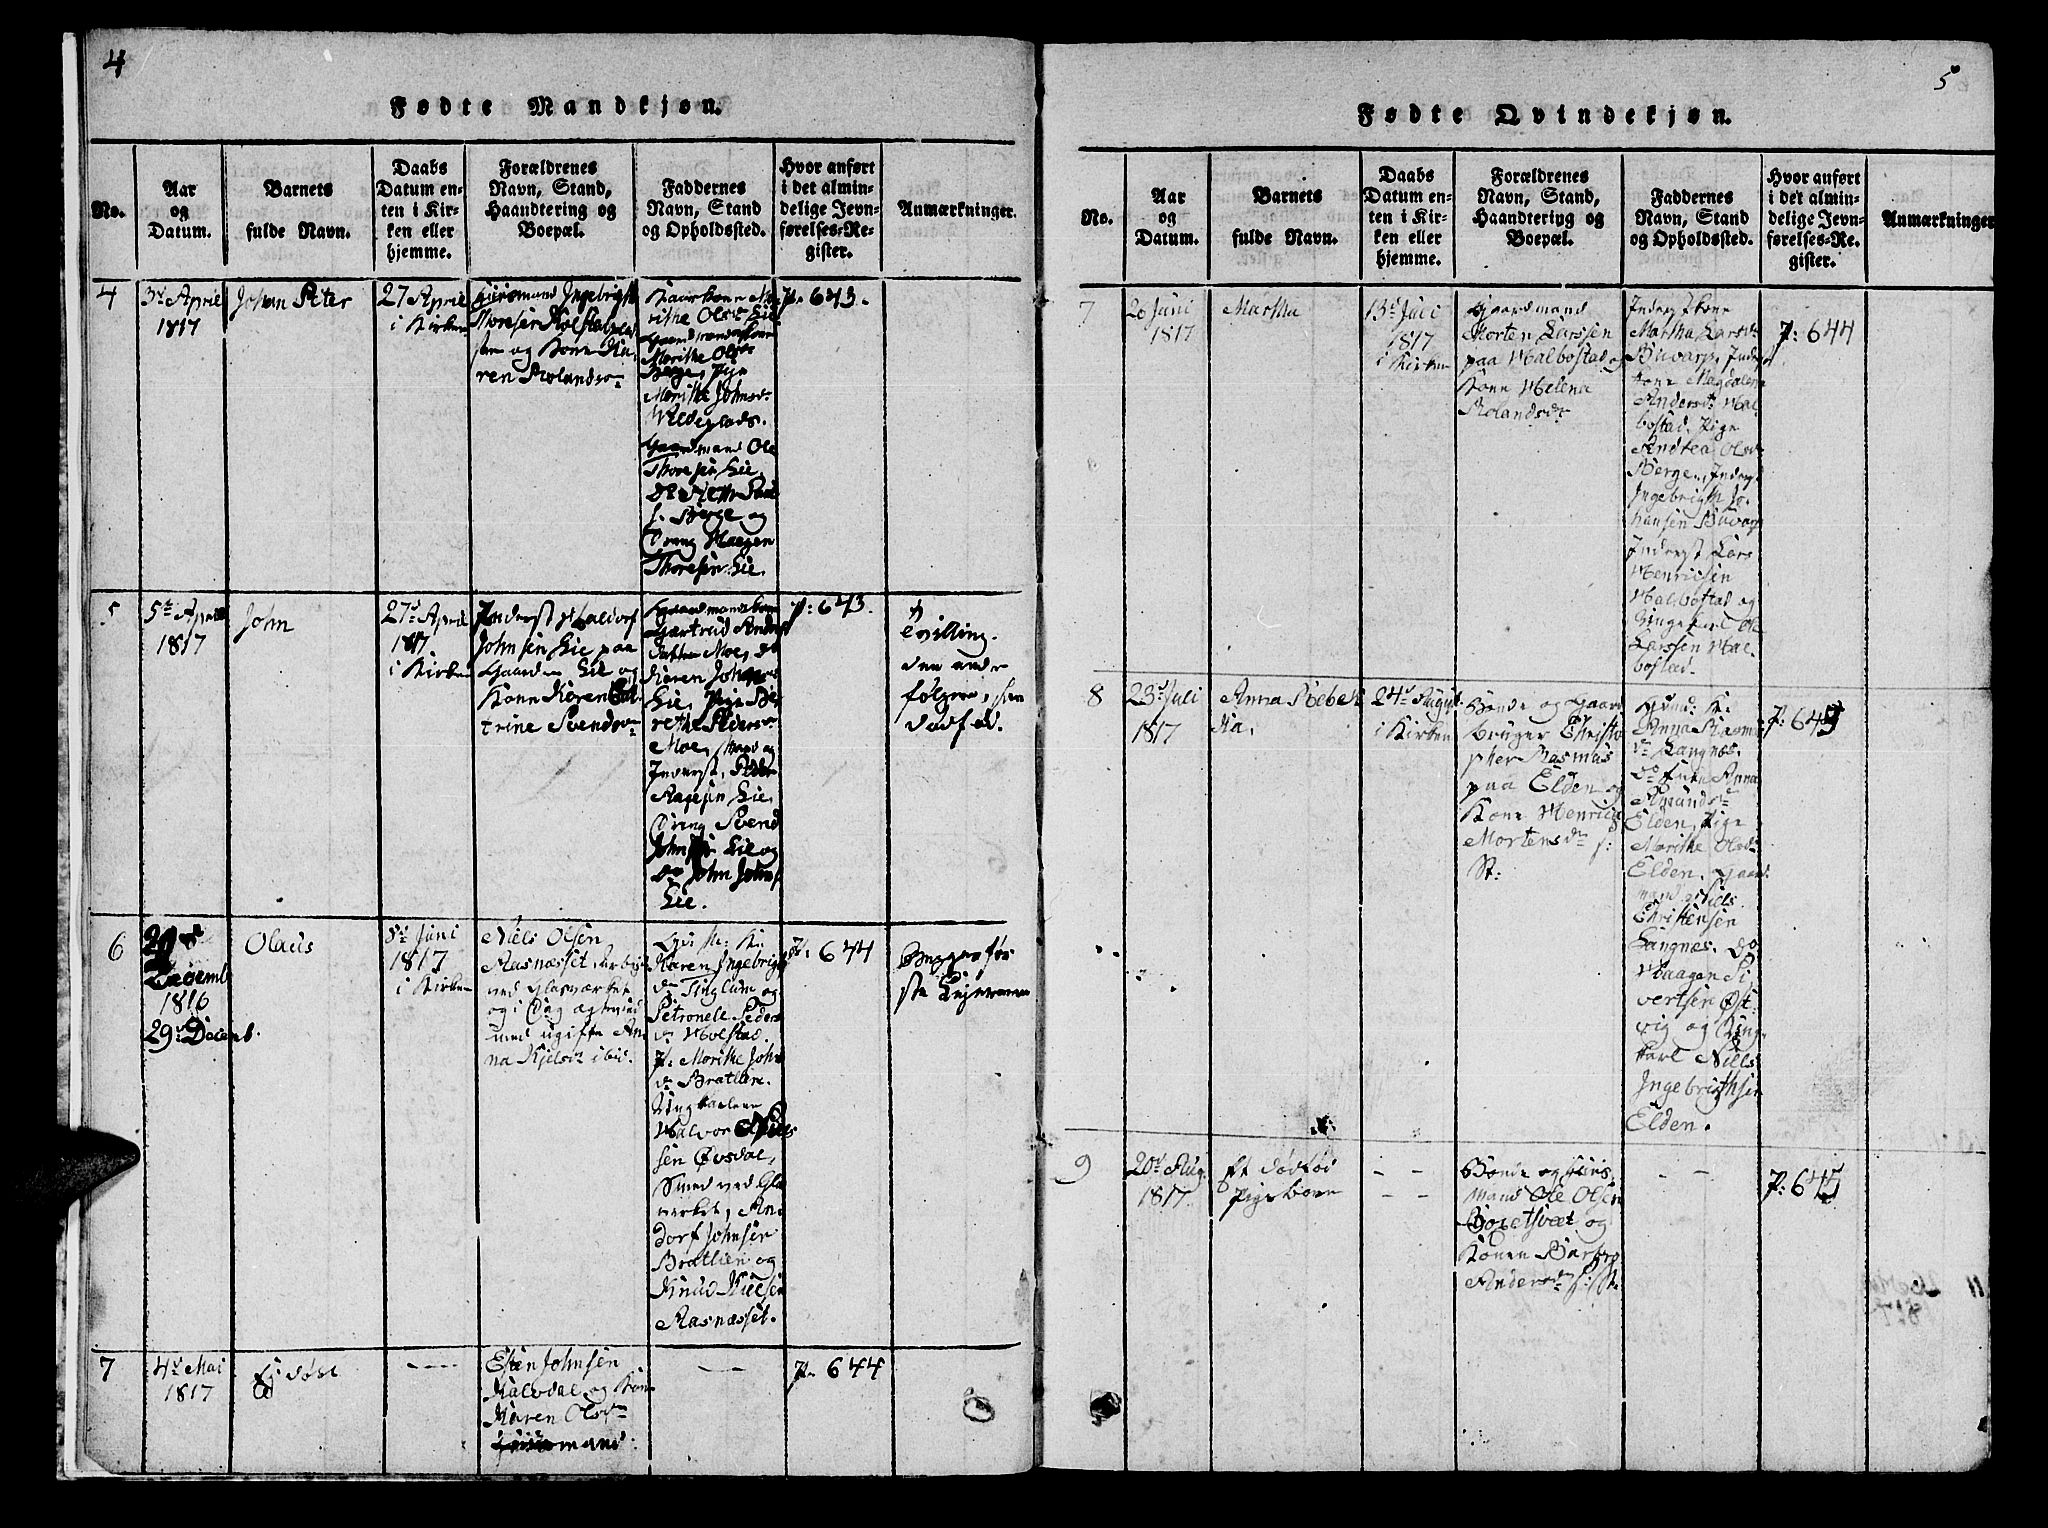 4
Fødte Mandkjøn.
No.
Aar
og
Datum.
Barnets
fulde Navn.
Daabs
Datum en-
ten i Kir-
ken eller
hjemme.
Forældrenes
Navn, Stand,
Haandtering og
Boepæl.
Faddernes
Navn, Stand
og Opholdssted.
Hvor anført
i det almin-
delige Jevn-
førelses-Re-
gister.
Anmærkninger.
4
3d April
1817
Johan Peter
27 April
i Kirken
Huusmand Ingebrigth
Thoresen
og Kone Ka-
ren Rolandsd.
rithe Olsdr Lie
Marithe Olsdr
Berge, Pige
Marithe Johnsd.
Gaardmand Ole
Thoresen Lie
Berge og
Dreng Haagen
Thoresen Lie.
P. 643.
5
5te April
1817
John
27d April
1817.
i Kirken
Inderst Haldorf
Johnsen Lie paa
Gaarden Lie og
Kone Karen Ca-
trine Svendsdr
Gaardmandskone
Gertrud Anders
Moe, do
Karen Johnsd
Lie, Pige Be-
rethe Pedersdr
Moe,
Inderst, Peder
Aagesen Lie,
Dreng Svend
Johnsen Lie og
do John Johns.
Lie.
P: 643.
Tvilling.
den andre
følger, som
dødfød.
6
29de
Decemb
1816
29d Decemb.
Olaus
8d Juni
1817
i Kirken
Niels Olsen
Aasnæsset, Arbeid
ved Glasværket
og i Dag ægtviet
med ugifte An-
na Kjelsdr ibid.
Karen Ingebrigt
dr Tinglum og
Petronele Peders
dr Holstad.
P. Marithe John
dr Bratlien.
Ungkarlene
Halvor Niels
sen Øvsdal,
Smed ved Gla
værket, An-
dorf Johnsen
Bratlien og
Knud Nielsen
Aasnæsset.
P. 644
Begges før-
ste Leiermaal
7
4d Mai
1817
----
Esten Johnsen
Kalvdal og Kone
Karen Olsdr
Huusmand.
— —
P. 644
5
Fødte Qvindekjøn.
No.
Aar
og
Datum.
Barnets
fulde Navn.
Daabs
Datum en-
ten i Kir-
ken eller
hjemme.
Forældrenes
Navn, Stand,
Haandtering og
Boepæl.
Faddernes
Navn, Stand
og Opholdssted.
Hvor anført
i det almin-
delige Jevn-
førelses-Re-
gister.
Anmærkninger
7
20 Juni
1817
Martha
13d Juli
1817
i Kirken
Gaardmand
Morten Larssen
paa Halbostad og
Kone Helena
Rolandsdr
Inderstkone
Martha Larsdr
Buvarp, Inderst
kone Magdalena
Andersdr Hal-
bostad. Pige
Andrea Olsdr
Berge, Inderst
Ingebrigth Jo-
hansen Buvarp
Inderst Lars
Henricsen
Halbostad og
Ungekarl Ole
Larssen Hal-
bostad.
P: 644
8
23d Juli
1817
Anna Rebek
ka.
24d August
i Kirken
Bonde og Gaard
bruger Christo-
pher Rasmus
paa Elden og
Kone Henrica
Mortensdr
St:
Anna Rasmus
dr Langnæs,
do Enke Anna
Amundsdr
Elden, Pige
Marithe Olsdr
Elden. Gaard
mand Niels
Christensen
Langnes. do
Haagen Si-
vertsen Øst-
vig og Ung-
karl Niels
Ingebrigthsen
Elden.
P: 645
9
20d Aug.
1817
Et dødfød
Pigebarn
— —
— —
Bonde og Huus
Mand Ole Olsen
og
Konen Barbro
Andersdr f: St.
— —
P: 645